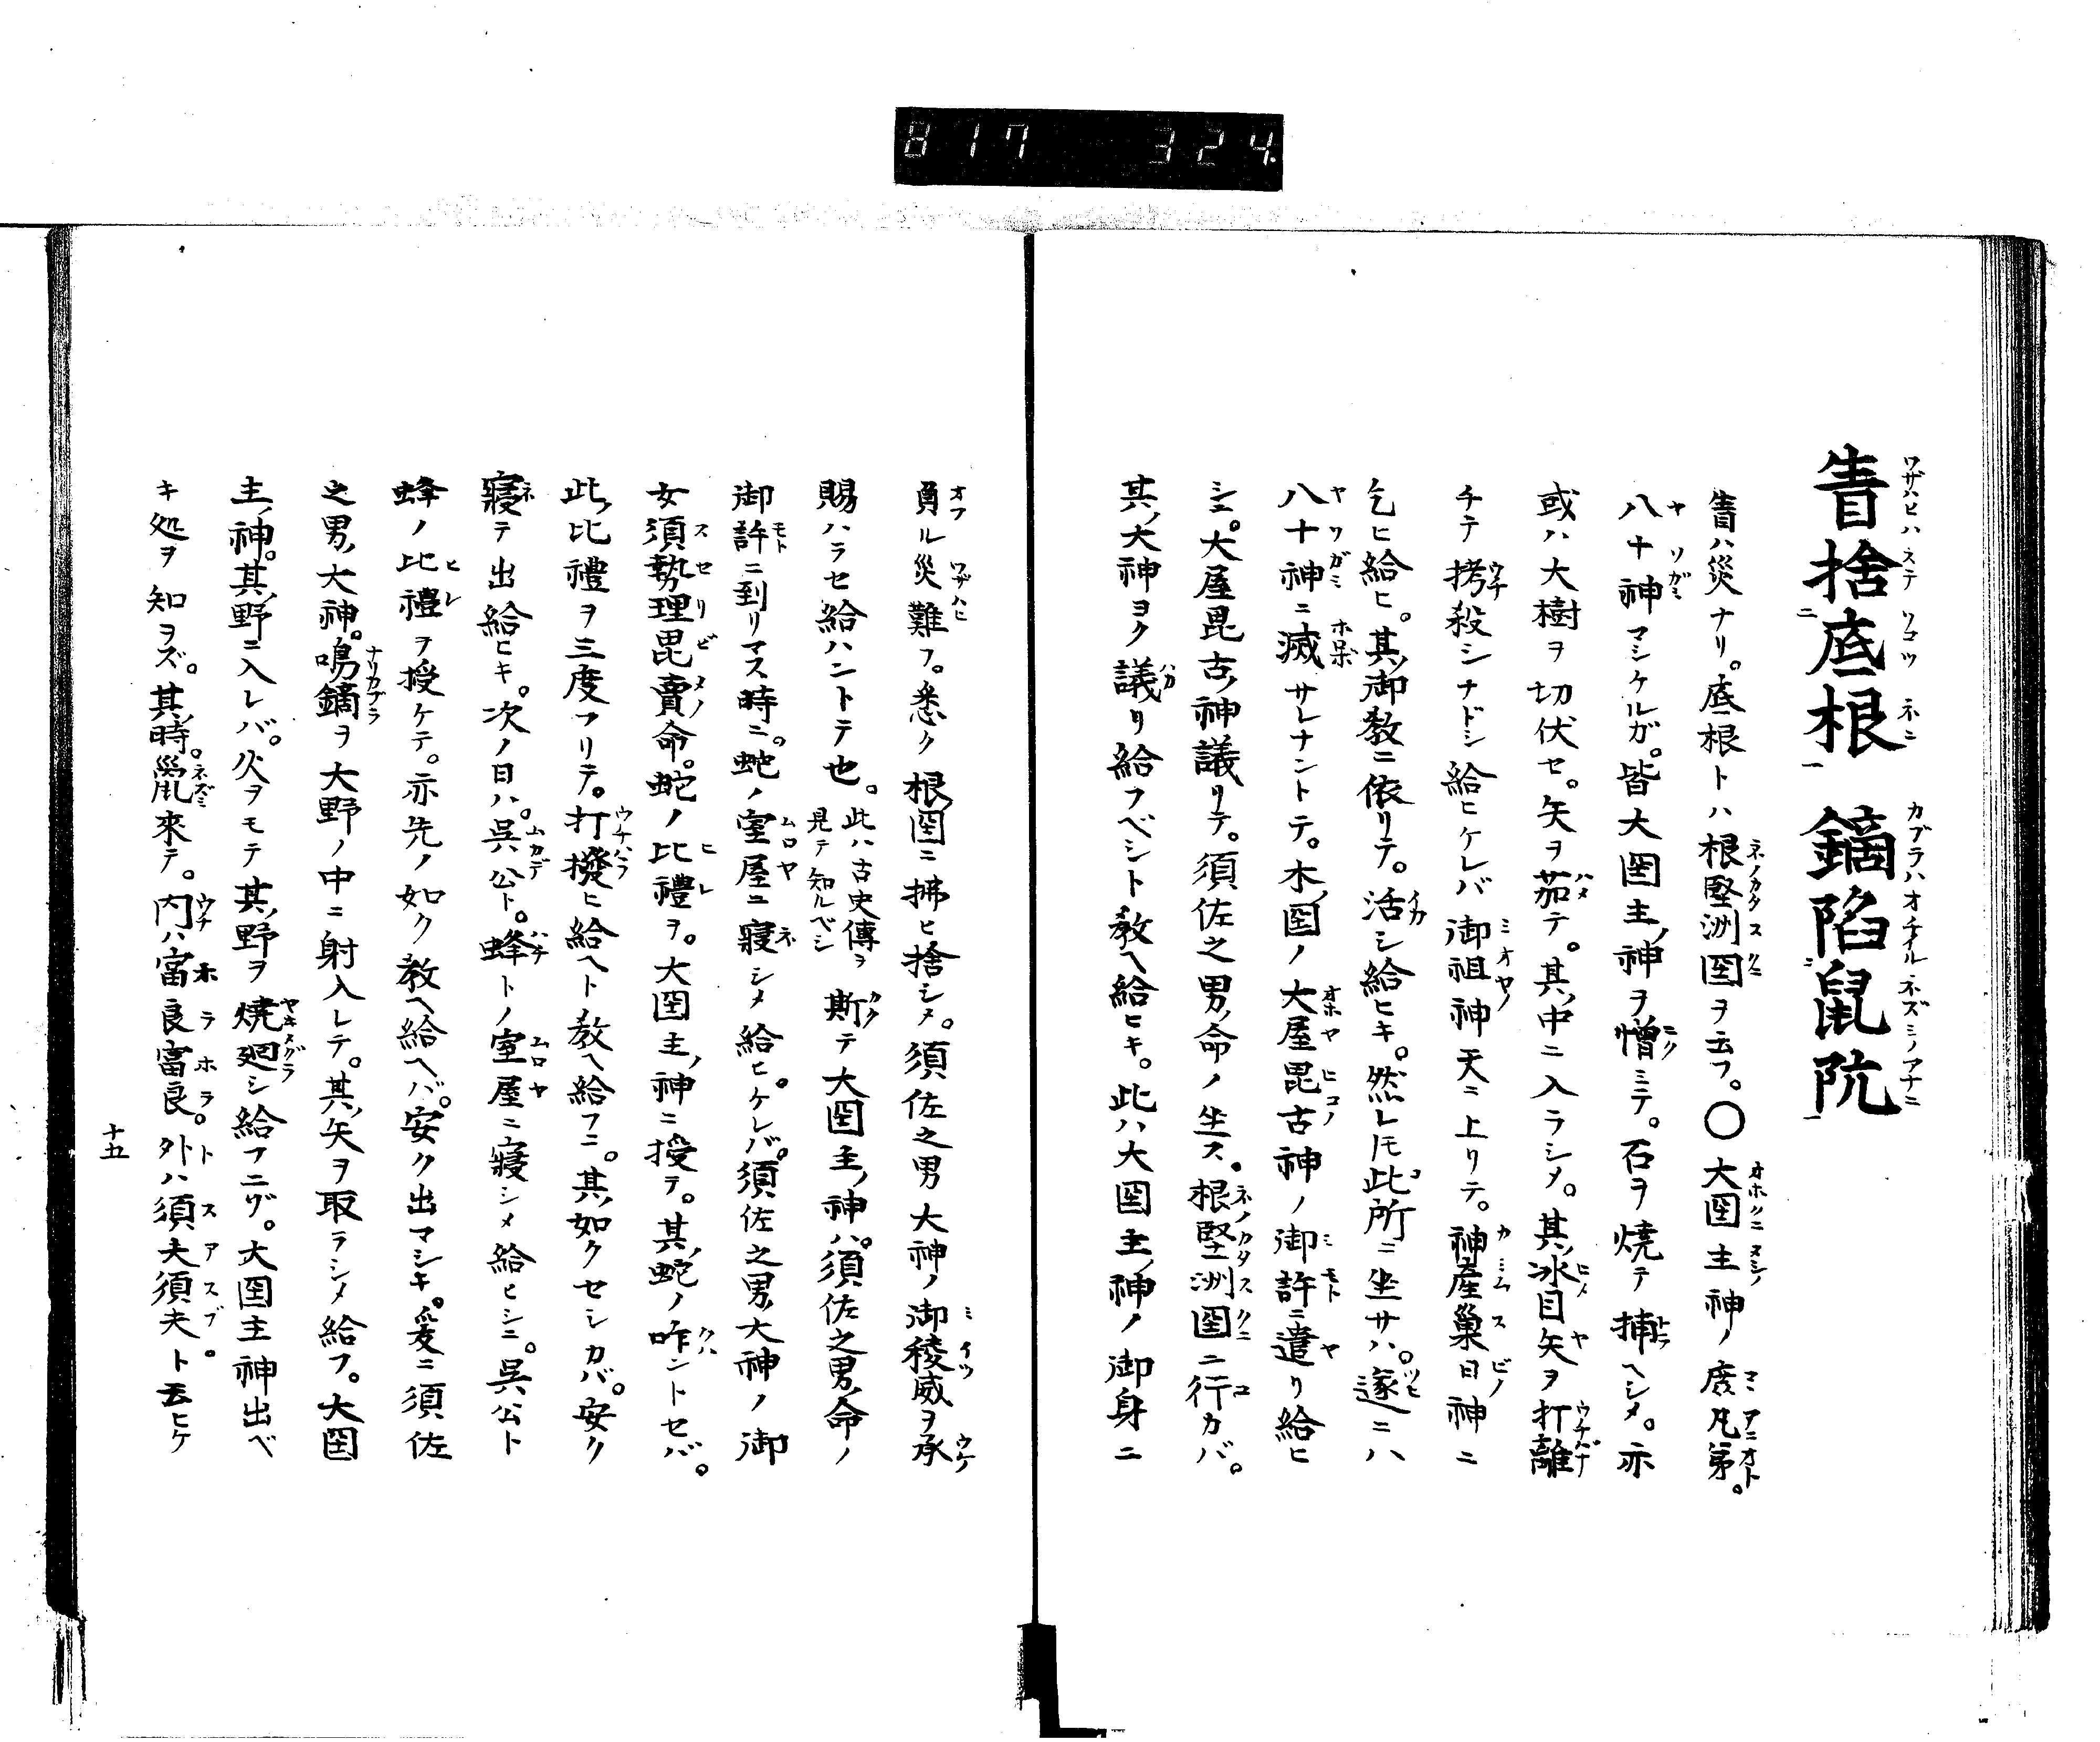 817 324
眚捨底根 鏑陷鼠阬
眚ハ災ナリ。底根トハ根堅洲国ヲ云フ。○大国主神ノ庶兄弟。
八十神マシケルガ。皆大国主ノ神ヲ憎ミテ。石ヲ焼テ捕ヘシメ。亦
或ハ大樹ヲ切伏セ。矢ヲ茹テ。其ノ中ニ入ラシメ。其ノ冰目矢ヲ打離
チテ拷殺シナドシ給ヒケレバ御祖神天ニ上リテ。神産巣日神ニ
乞ヒ給ヒ。其ノ御教ニ依リテ。活シ給ヒキ。然レ𪜈此所ニ坐サハ。遂ニハ
八十神ニ滅サレナントテ。木ノ国ノ大屋毘古神ノ御許ニ遣リ給ヒ
シニ。大屋毘古ノ神議リテ。須佐之男ノ命ノ坐ス。根堅洲国ニ行カバ。
其ノ大神ヨク議リ給フベシト教ヘ給ヒキ。此ハ大国主ノ神ノ御身ニ
負ル災難フ。悉ク根国ニ拂ヒ捨シメ。須佐之男大神ノ御稜威ヲ承
賜ハラセ給ハントテ也。此ハ古史傳ヲ見テ知ルベシ 斯テ大国主ノ神ハ。須佐之男ノ命ノ
御許ニ到リマス時ニ。蛇ノ室屋ニ寢シメ給ヒケレバ。須佐之男ノ大神ノ御
女須勢理毘賣命。蛇ノ比禮ヲ。大国主ノ神ニ授テ。其ノ蛇ノ咋ントセバ。
此ノ比禮ヲ三度フリテ。打撥ヒ給ヘト教ヘ給フニ。其ノ如クセシカバ。安ク
寢テ出給ヒキ。次ノ日ハ。呉公ト。蜂トノ室屋ニ寢シメ給ヒシニ。呉公ト
蜂ノ比禮ヲ授ケテ。亦先ノ如ク教ヘ給ヘバ。安ク出マシキ。爰ニ須佐
之男ノ大神。鳴鏑ヲ大野ノ中ニ射入レテ。其ノ矢ヲ取ラシメ給フ。大国
主ノ神。其ノ野ニ入レバ。火ヲモテ其ノ野ヲ焼廻シ給フニゾ。大国主神出ベ
キ処ヲ知ヲズ。其ノ時。鼠來テ。内ハ富良富良。外ハ須夫須夫ト云ヒケ
十五